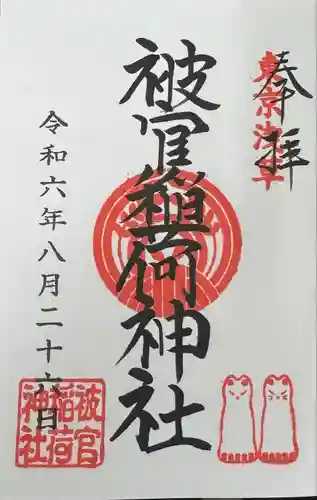 奉拝
東京浅草
被官稲荷神社
令和六年八月二十六日
被官
稲荷
神社